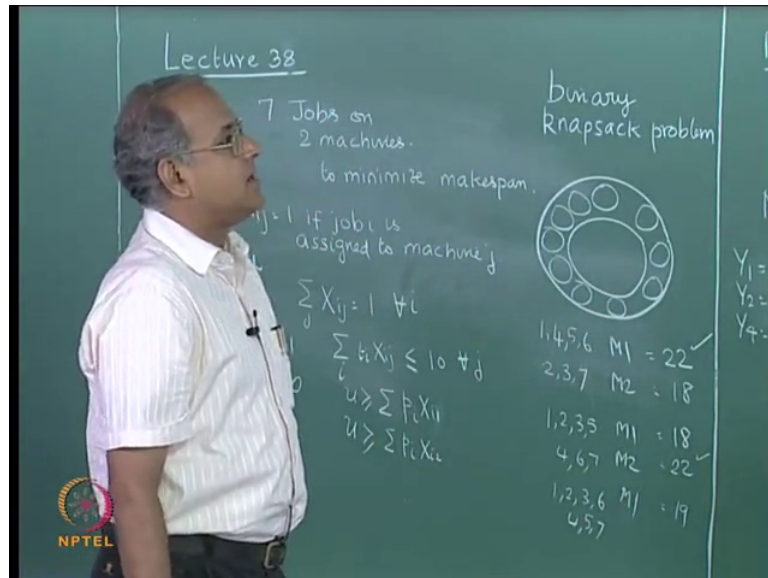 Lecture 38
7 Jobs on
2 machines.
to minimize makespan.
ij = 1 if job i is
assigned to machine j
∑j Xij = 1 ∀i
∑i ti Xij ≤ 10 ∀j
u ≥ ∑ pi Xi1
u ≥ ∑ pi Xi2
binary
knapsack problem
1,4,5,6 M1 = 22 ✓
2,3,7 M2 = 18
1,2,3,5 M1 = 18
4,6,7 M2 = 22 ✓
1,2,3,6 M1 = 19
4,5,7
Y1 =
Y2 =
Y4 =
NPTEL